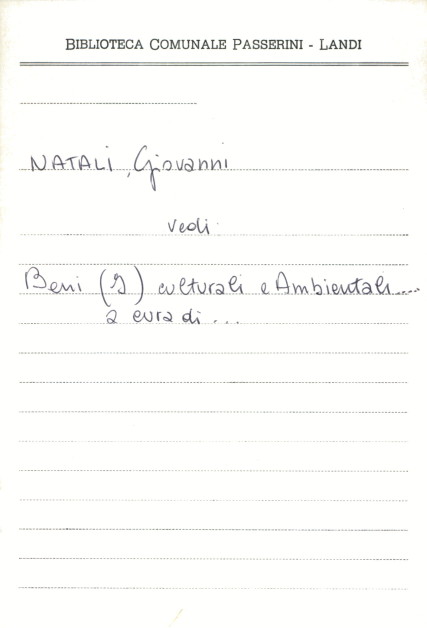 BIBLIOTECA COMUNALE PASSERINI - LANDI
NATALI, Giovanni
vedi
Beni (I) culturali e Ambientali....
a cura di ...